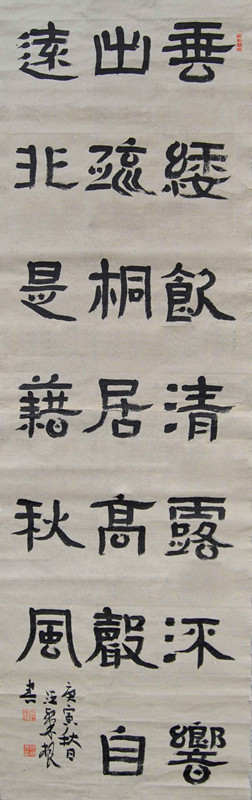 垂緌飲清露流響
出疏桐居高聲自
遠非是藉秋風
庚寅秋日
汪根
書